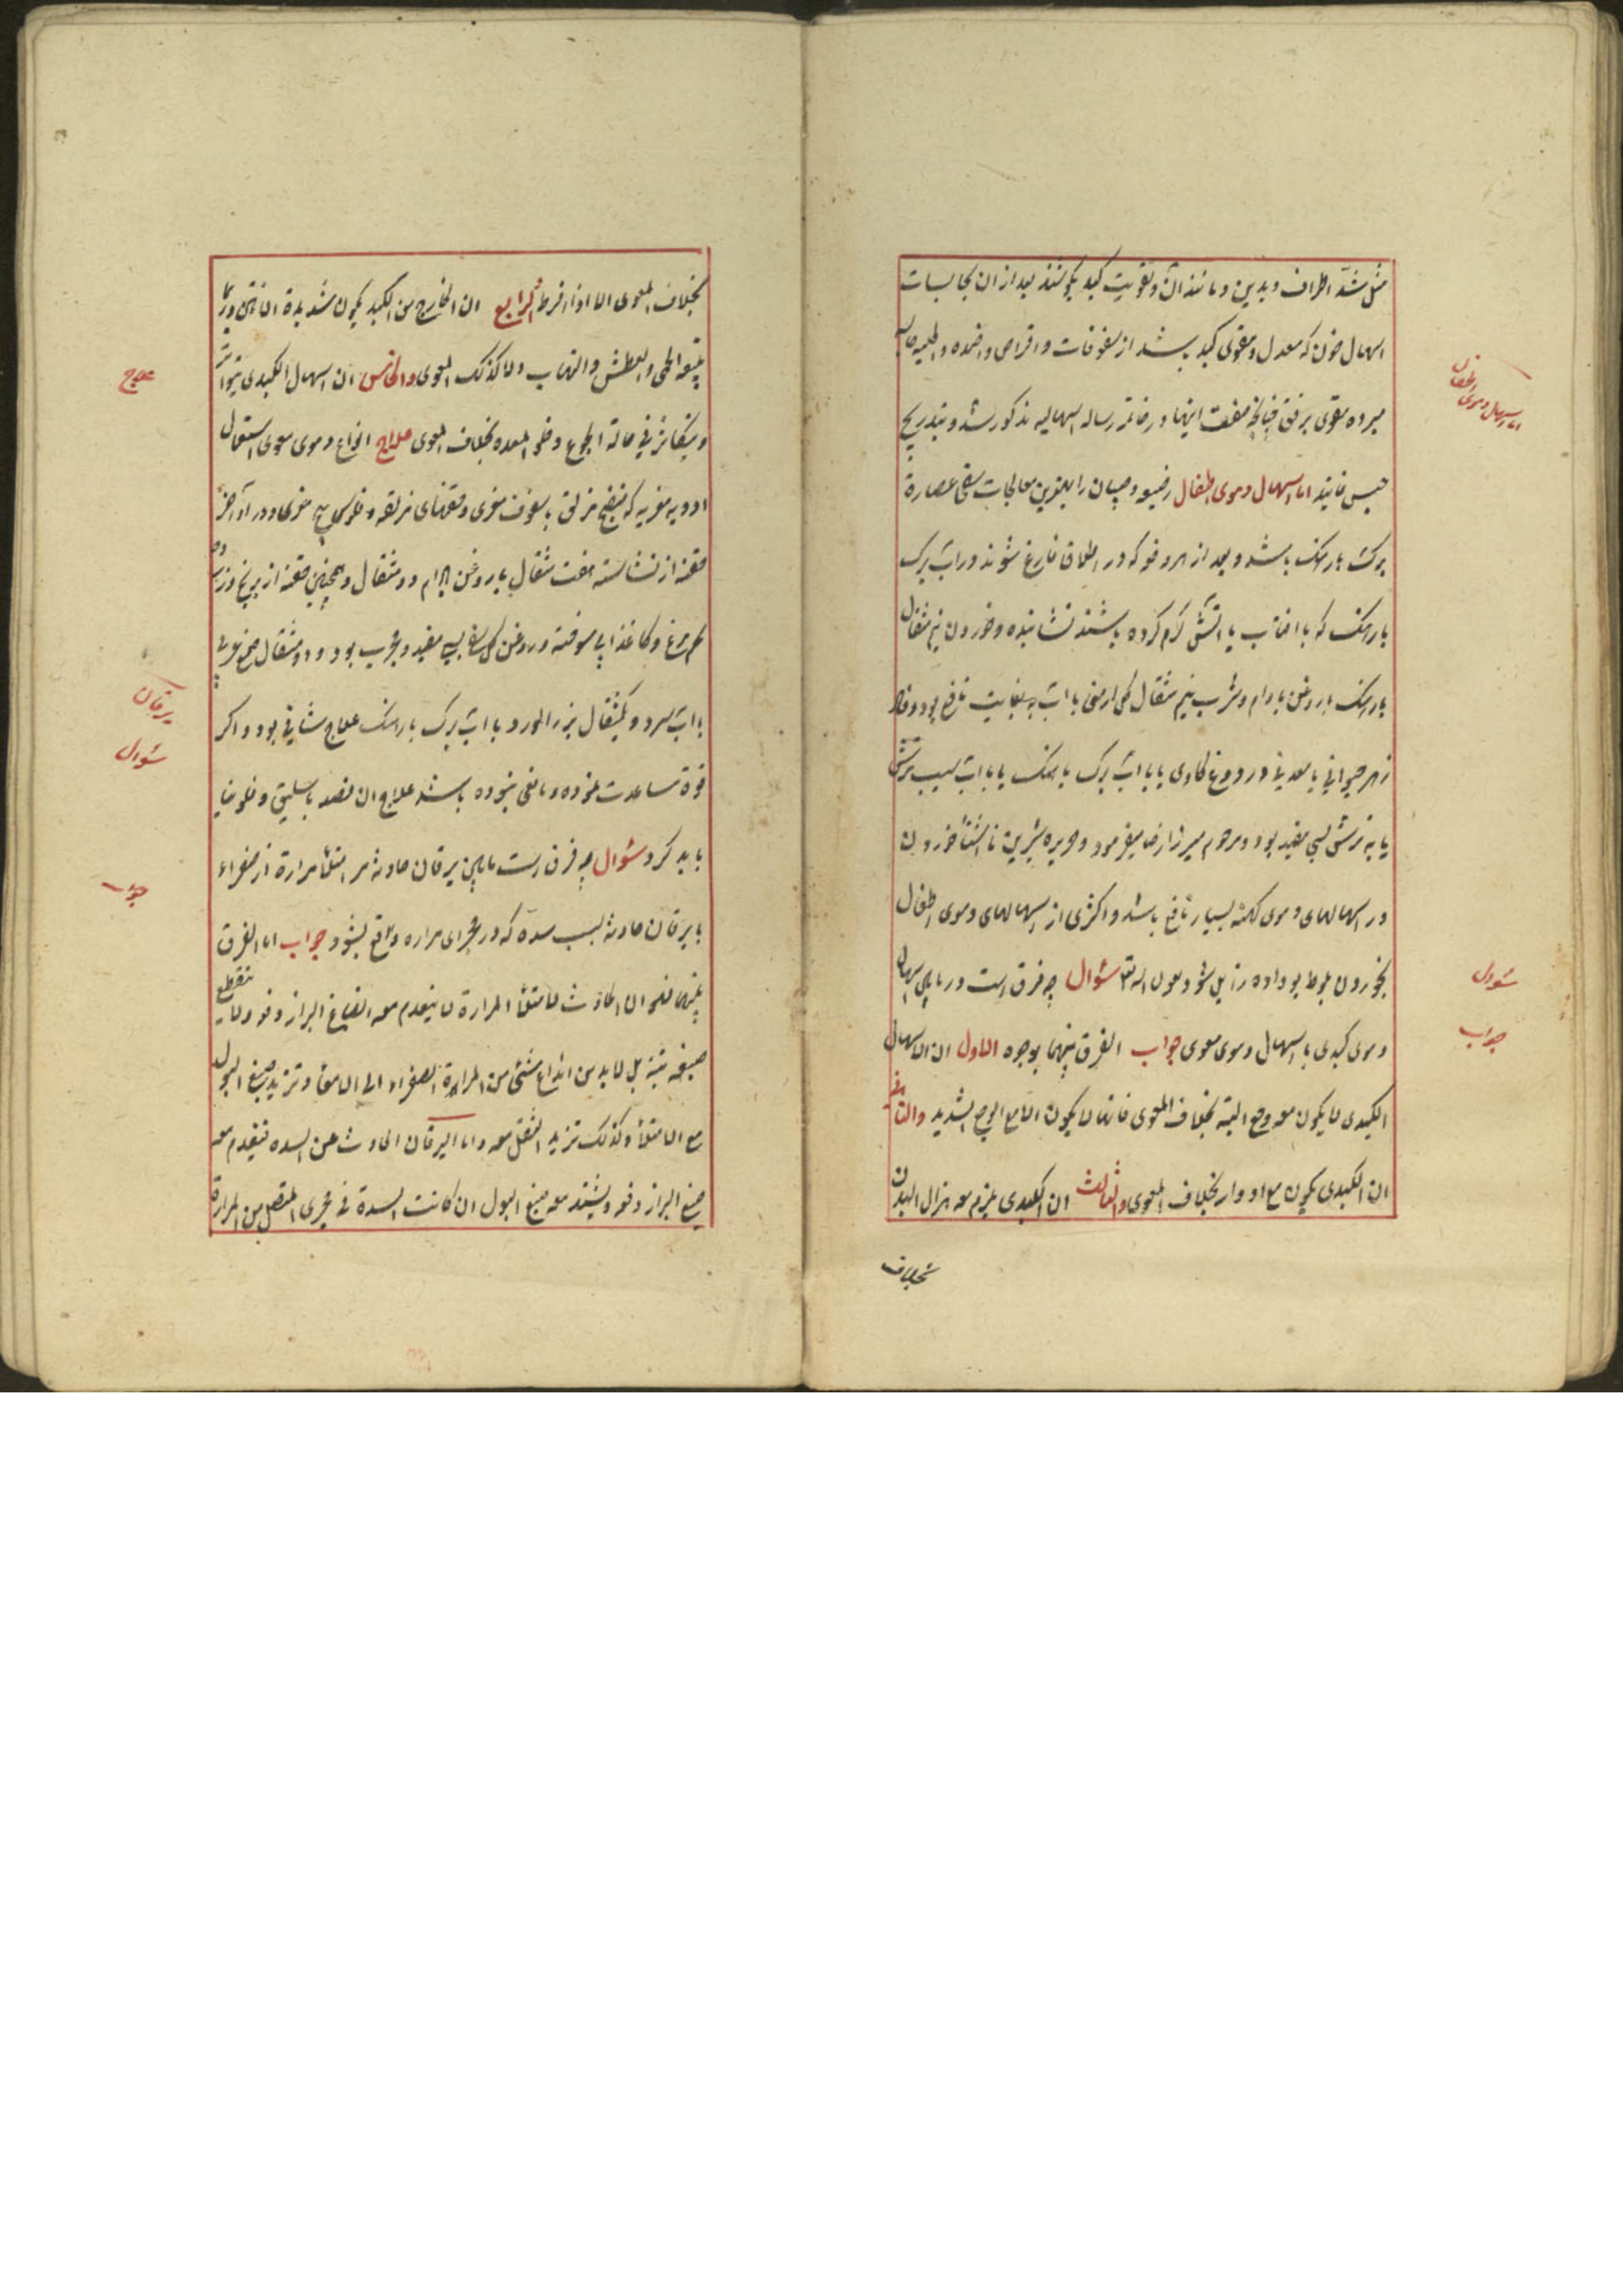 مثل شدّ اطراف و یدین و مانند آن و تقویت کبد بکوشند بعد از ان بحابسات
اسهال خون که معدل و مقوی کبد باشد از سفوفات و اقراص و اضمده و اطلیه
مبرده مقوی برفق چنانچه صفت اینها در خاتمه رساله اسهالیه مذکور شد و بتدریج
حبس نمایند اما اسهال دموی اطفال رضیع و صبیان را بهترین معالجات سقی عصارة
برک بارهنک باشد و بعد از هر دفعه که در اطلاق فارغ شوند در اب برک
بارهنک که با افتاب یا اتش کرم کرده باشند نشانیده و خوردن نیم مثقال
بارهنک با روغن بادام و شرب نیم مثقال کل ارمنی با اب به بغایت نافع بود
زهر حیوانی یا معدنی در دوغ کاوی یا با اب برک بارهنک یا با اب سیب ترش
یا به ترش بسی مفید بود و مرحوم میرزا رضا میفرمود و حریره شیرین ناشتا خوردن
در اسهالهای دموی کهنه بسیار نافع باشد و اکثری از اسهالهای دموی اطفال
بخوردن بلوط بو داده زایل شود بعون الله تع سئوال چه فرق است در مابین اسهال
دموی کبدی با اسهال دموی معوی جواب الفرق بینهما بوجوه الاول ان الاسهال
الکبدی لا یکون معه وجع البته بخلاف المعوی فانه لا یکون الا مع الوجع الشدید والثانی
ان الکبدی یکون مع ادوار بخلاف المعوی والثالث ان الکبدی یلزم معه هزال البدن
بخلاف
اما اسهال دموی اطفال
سئوال
جواب
بخلاف المعوی الا اذا افرط الرابع ان الخارج من الکبد یکون شدیدة النتن و ربما
یتبعه الحمی والعطش والتهاب ولا کذلک المعوی والخامس ان اسهال الکبدی یتواتر
و یتکاثر فی حالة الجوع و خلو المعده بخلاف المعوی علاج انواع دموی معوی استعمال
ادویه مغریه که منفخ مزلق با سفوف مغری و حقنهای مزلقه و فلوس خیار
حقنه از نشاسته هفت مثقال با روغن بادام دو مثقال و همچنین حقنه از برنج و زرده
تخم مرغ و کاغذ ابی سوخته و روغن کل سرخ بسی مفید و مجرب بود و دو مثقال صمغ عربی
با اب سرد و یکمثقال بزر الورد با اب برک بارهنک علاج شافی بود و اکر
قوة مساعدت نموده و مانعی نبوده باشد علاج ان فصد باسلیق و فلونیا
باید کرد سئوال چه فرق است مابین یرقان حادثه از امتلاء مرارة از صفراء
با یرقان حادثه بسبب سده که در مجرای مراره واقع بشود جواب اما الفرق
بینهما فلان الحادث لامتلاء المرارة لا ینعدم معه انصباغ البراز دفعه ولا ینقطع
صبغه بتة بل لابد من اندفاع شئی من المرارة الصفراء الی الامعاء و تزید صبغ البول
مع الامتلاء و کذلک تزید الثقل معه و اما الیرقان الحادث عن السده فینعدم معه
صبغ البراز دفعه و یشتد معه صبغ البول ان کانت السدة فی مجری المتصل من المرارة
علاج
یرقان
سئوال
جواب